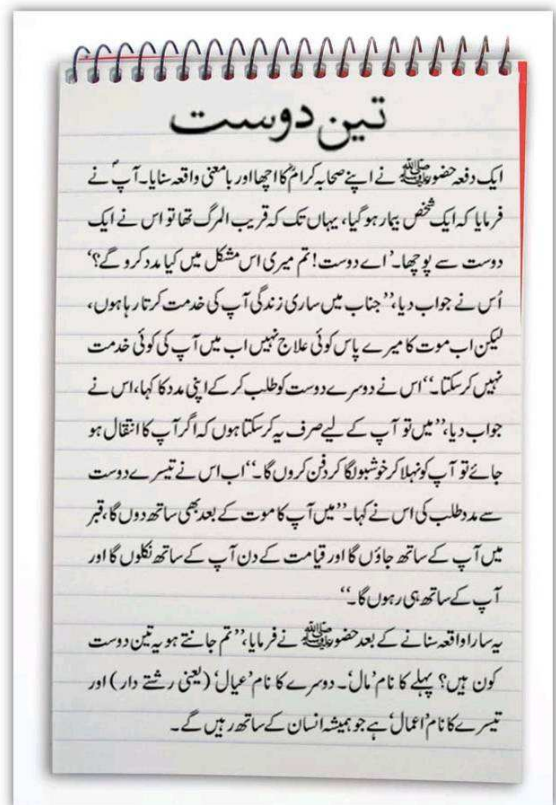 تین دوست
ایک دفعہ حضورﷺ نے اپنے صحابہ کرامؓ کا اچھا اور بامعنی واقعہ سنایا۔ آپؐ نے
فرمایا کہ ایک شخص بیمار ہو گیا، یہاں تک کہ قریب المرگ تھا تو اس نے ایک
دوست سے پوچھا۔ ’اے دوست! تم میری اس مشکل میں کیا مدد کرو گے؟‘
اُس نے جواب دیا، ’’جناب میں ساری زندگی آپ کی خدمت کرتا رہا ہوں،
لیکن اب موت کا میرے پاس کوئی علاج نہیں اب میں آپ کی کوئی خدمت
نہیں کر سکتا۔‘‘ اس نے دوسرے دوست کو طلب کر کے اپنی مدد کا کہا، اس نے
جواب دیا، ’’میں تو آپ کے لیے صرف یہ کر سکتا ہوں کہ اگر آپ کا انتقال ہو
جائے تو آپ کو نہلا کر خوشبو لگا کر دفن کروں گا۔‘‘ اب اس نے تیسرے دوست
سے مدد طلب کی اس نے کہا۔ ’’میں آپ کا موت کے بعد بھی ساتھ دوں گا، قبر
میں آپ کے ساتھ جاؤں گا اور قیامت کے دن آپ کے ساتھ نکلوں گا اور
آپ کے ساتھ ہی رہوں گا۔‘‘
یہ سارا واقعہ سنانے کے بعد حضورﷺ نے فرمایا، ’’تم جانتے ہو یہ تین دوست
کون ہیں؟ پہلے کا نام ’مال‘۔ دوسرے کا نام ’عیال‘ (یعنی رشتے دار) اور
تیسرے کا نام ’اعمال‘ ہے جو ہمیشہ انسان کے ساتھ رہیں گے۔